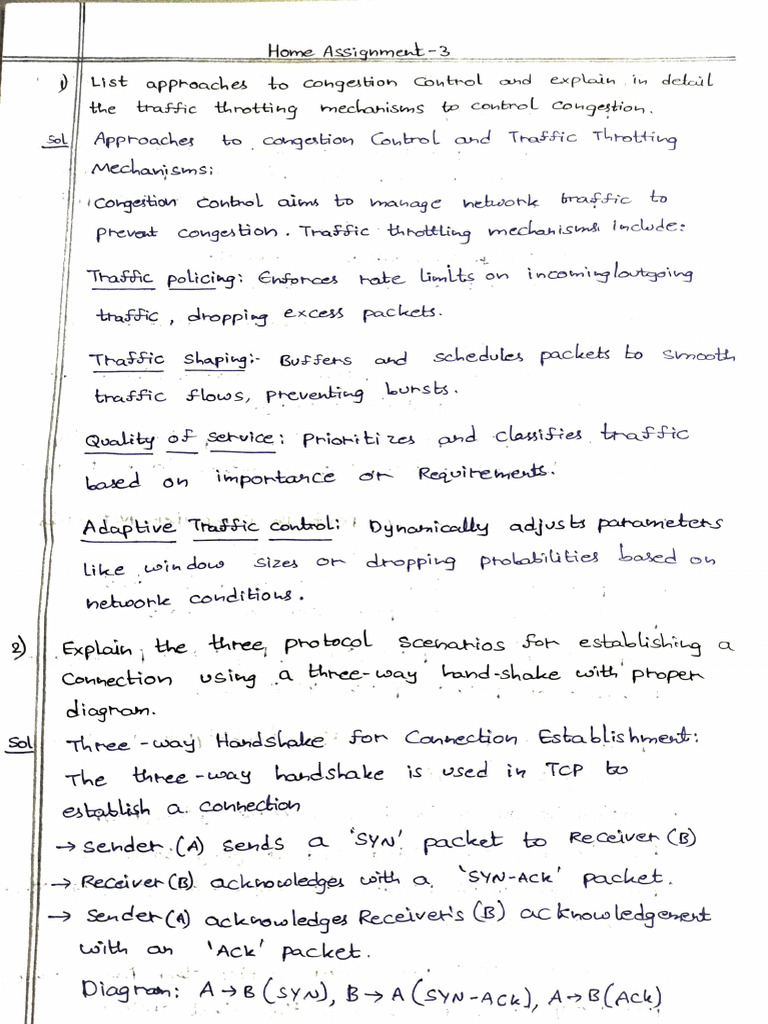 Home Assignment-3
1) List approaches to congestion control and explain in detail
the traffic throtting mechanisms to control congestion.
Sol Approaches to congestion Control and Traffic Throtting
Mechanisms:
Congestion control aims to manage network traffic to
prevent congestion. Traffic throttling mechanisms include:
Traffic policing: Enforces rate limits on incoming/outgoing
traffic, dropping excess packets.
Traffic Shaping:- Buffers and schedules packets to smooth
traffic flows, preventing bursts.
Quality of service: Prioritizes and classifies traffic
based on importance or Requirements.
Adaptive Traffic control: Dynamically adjusts parameters
like window sizes or dropping probabilities based on
network conditions.
2) Explain the three protocol scenarios for establishing a
Connection using a three-way hand-shake with proper
diagram.
Sol Three-way Handshake for Connection Establishment:
The three-way handshake is used in TCP to
establish a connection
→ Sender (A) sends a 'SYN' packet to Receiver (B)
→ Receiver (B) acknowledges with a 'SYN-ACK' packet.
→ Sender (A) acknowledges Receiver's (B) acknowledgement
with an 'ACK' packet.
Diagram: A→B (SYN), B→A (SYN-ACK), A→B (ACK)